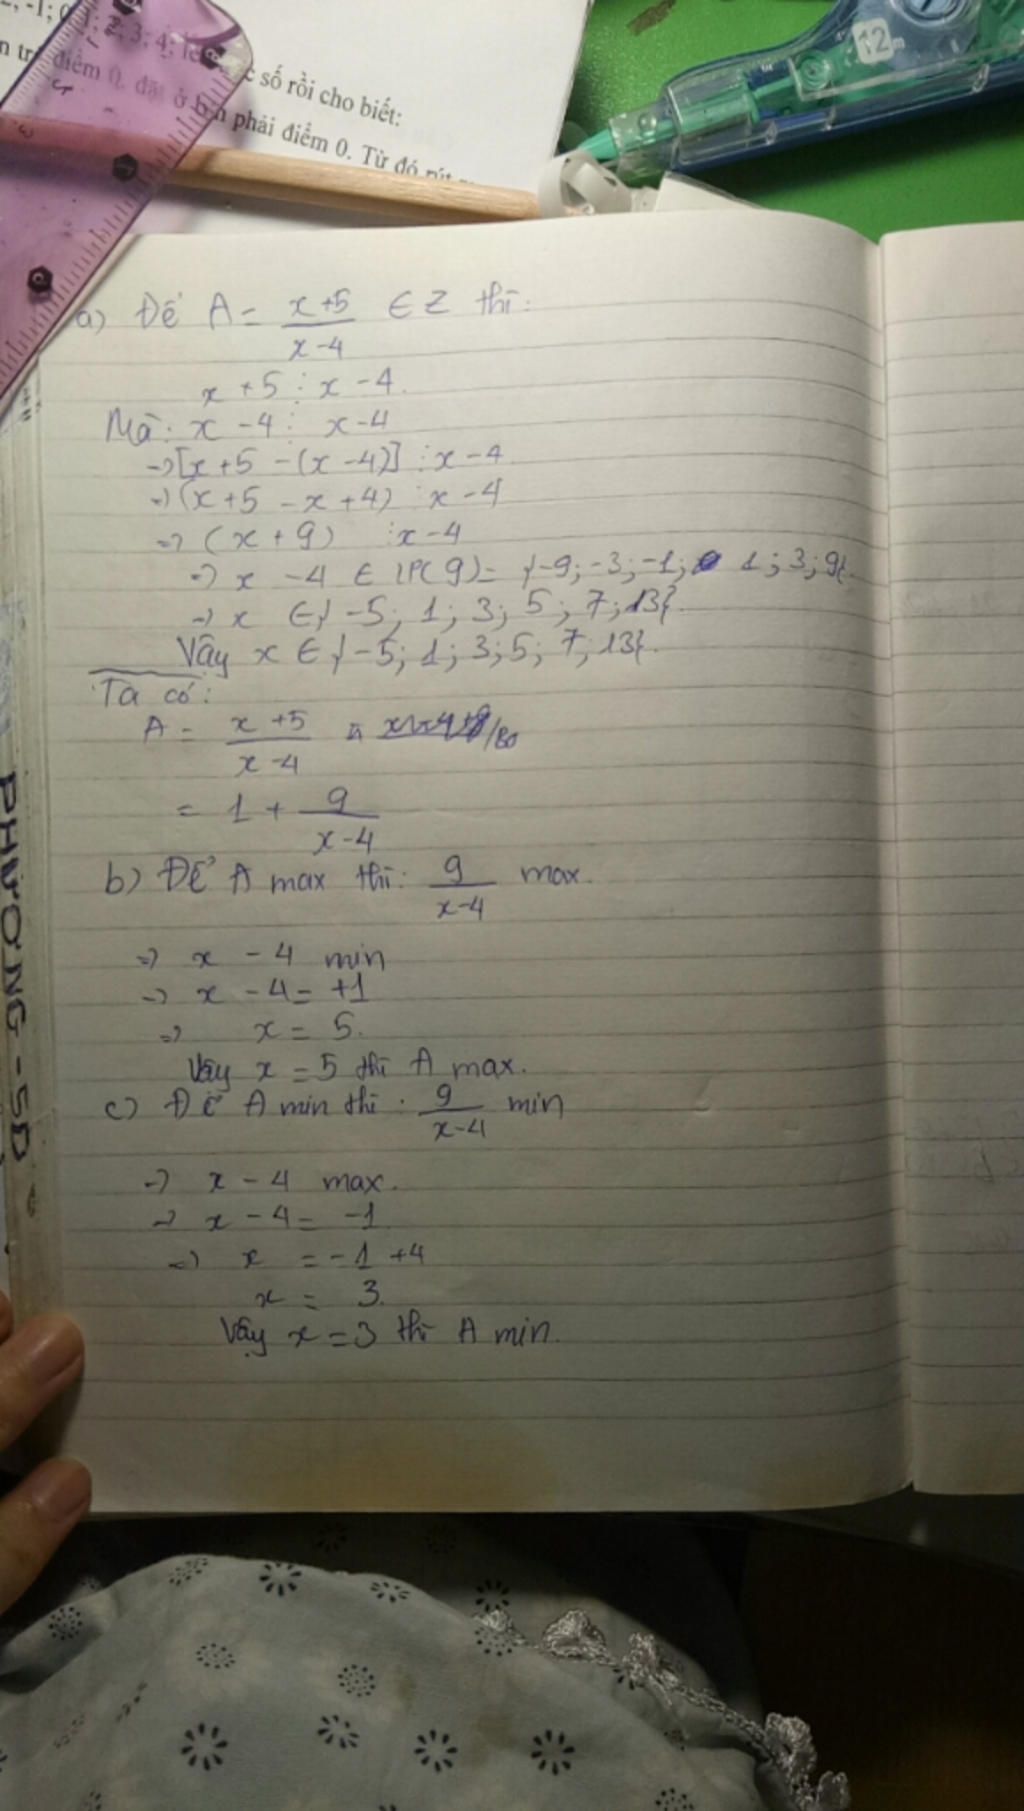 số rồi cho biết:
điểm 0. đặt ở bên phải điểm 0. Từ đó rút
12m
a) Để A = \frac{x+5}{x-4} ∈ Z thì:
x + 5 ⋮ x - 4.
Mà: x - 4 ⋮ x - 4
=> [x + 5 - (x - 4)] ⋮ x - 4
=> (x + 5 - x + 4) ⋮ x - 4
=> (x + 9) ⋮ x - 4
=> x - 4 ∈ Ư(9) = {-9; -3; -1; 1; 3; 9}.
=> x ∈ {-5; 1; 3; 5; 7; 13}.
Vậy x ∈ {-5; 1; 3; 5; 7; 13}.
Ta có:
A = \frac{x+5}{x-4} =
= 1 + \frac{9}{x-4}
b) Để A max thì: \frac{9}{x-4} max.
=> x - 4 min
=> x - 4 = +1
=> x = 5.
Vậy x = 5 thì A max.
c) Để A min thì: \frac{9}{x-4} min
=> x - 4 max.
=> x - 4 = -1
=> x = -1 + 4
x = 3.
Vậy x = 3 thì A min.
PHƯƠNG - 5D